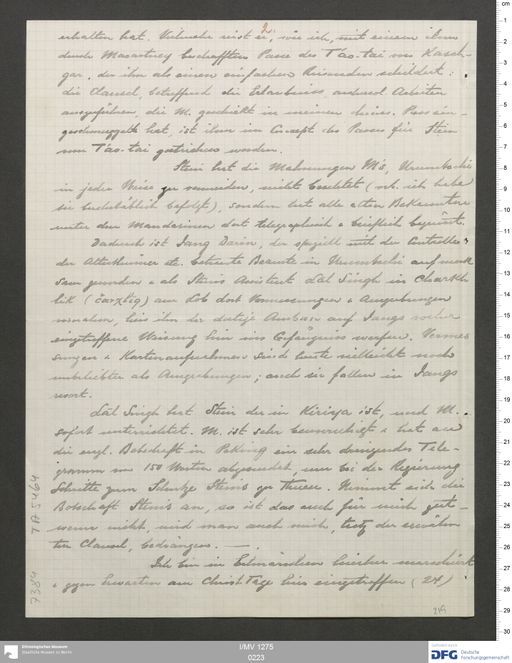 2.
erhalten hat. Vielmehr reist er, wie ich, mit einem ihm
durch Macartney beschafften Passe des T'ao-tai von Kasch-
gar, der ihn als einen einfachen Reisenden schildert;
die Clausel, betreffend die Erlaubniss, anderes Arbeiten
auszuführen, die M. geschickt in meinen hinein
geschmuggelt hat, ist ihm im Concept des Passes für Stein
vom T'ao-tai gestrichen worden.
Stein hat die Mahnungen M's, Urumtschi
in jeder Weise zu vermeiden, nicht beachtet (ich habe
sie buchstäblich befolgt), sondern hat alle alten Bekannten
unter den Mandarinen dort telegraphisch & brieflich begrüsst.
Dadurch ist Jang Darin, der speziell mit der Controlle
der Alterthümer etc. betraute Beamte in Urumtschi aufmerk
sam geworden & als Steins Assistent Lal Singh in Charkh-
lik am Lob dort Vermessungen & Ausgrabungen
vornahm, liess ihn der dortige Amban auf Jangs vorher
eingetroffene Weisung hin ins Gefängniss werfen. Vermes
sungen & Kartenaufnahmen sind heute vielleicht noch
unbeliebter als Ausgrabungen; auch sie fallen in Jangs
ressort.
Lal Singh hat Stein der in Kiriya ist, und M.
sofort unterrichtet. M. ist sehr beunruhigt & hat an
die engl. Botschaft in Peking ein sehr dringendes Tele-
gramm von 150 Worten abgesendet, um bei der Regierung
Schritte zum Schutze Steins zu thuen. Nimmt sich die
Botschaft Steins an, so ist das auch für mich gut -
wenn nicht, wird man auch mich, trotz der erwähn
ten Clausel, bedrängen. —
Ich bin in Eilmärschen hierher marschiert
& gegen Erwarten am Christ Tage hier eingetroffen (24)
TA 5464
7384
219
I/MV 1275
0223
Ethnologisches Museum
Staatliche Museen zu Berlin
gefördert durch
DFG Deutsche
Forschungsgemeinschaft
cm
1
2
3
4
5
6
7
8
9
10
11
12
13
14
15
16
17
18
19
20
21
22
23
24
25
26
27
28
29
30